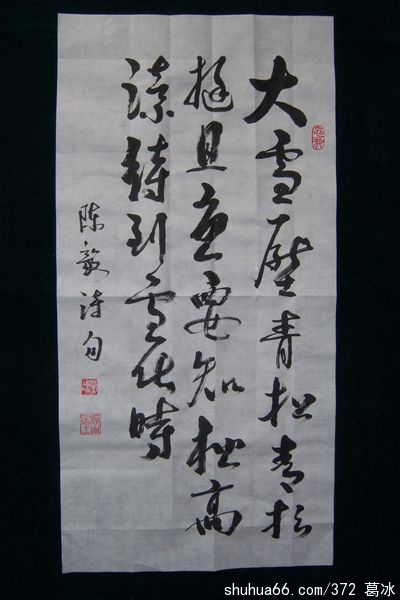 大雪壓青松青松
挺且直要知松高
潔待到雪化時
陈毅诗句
shuhua66.com/372 葛冰